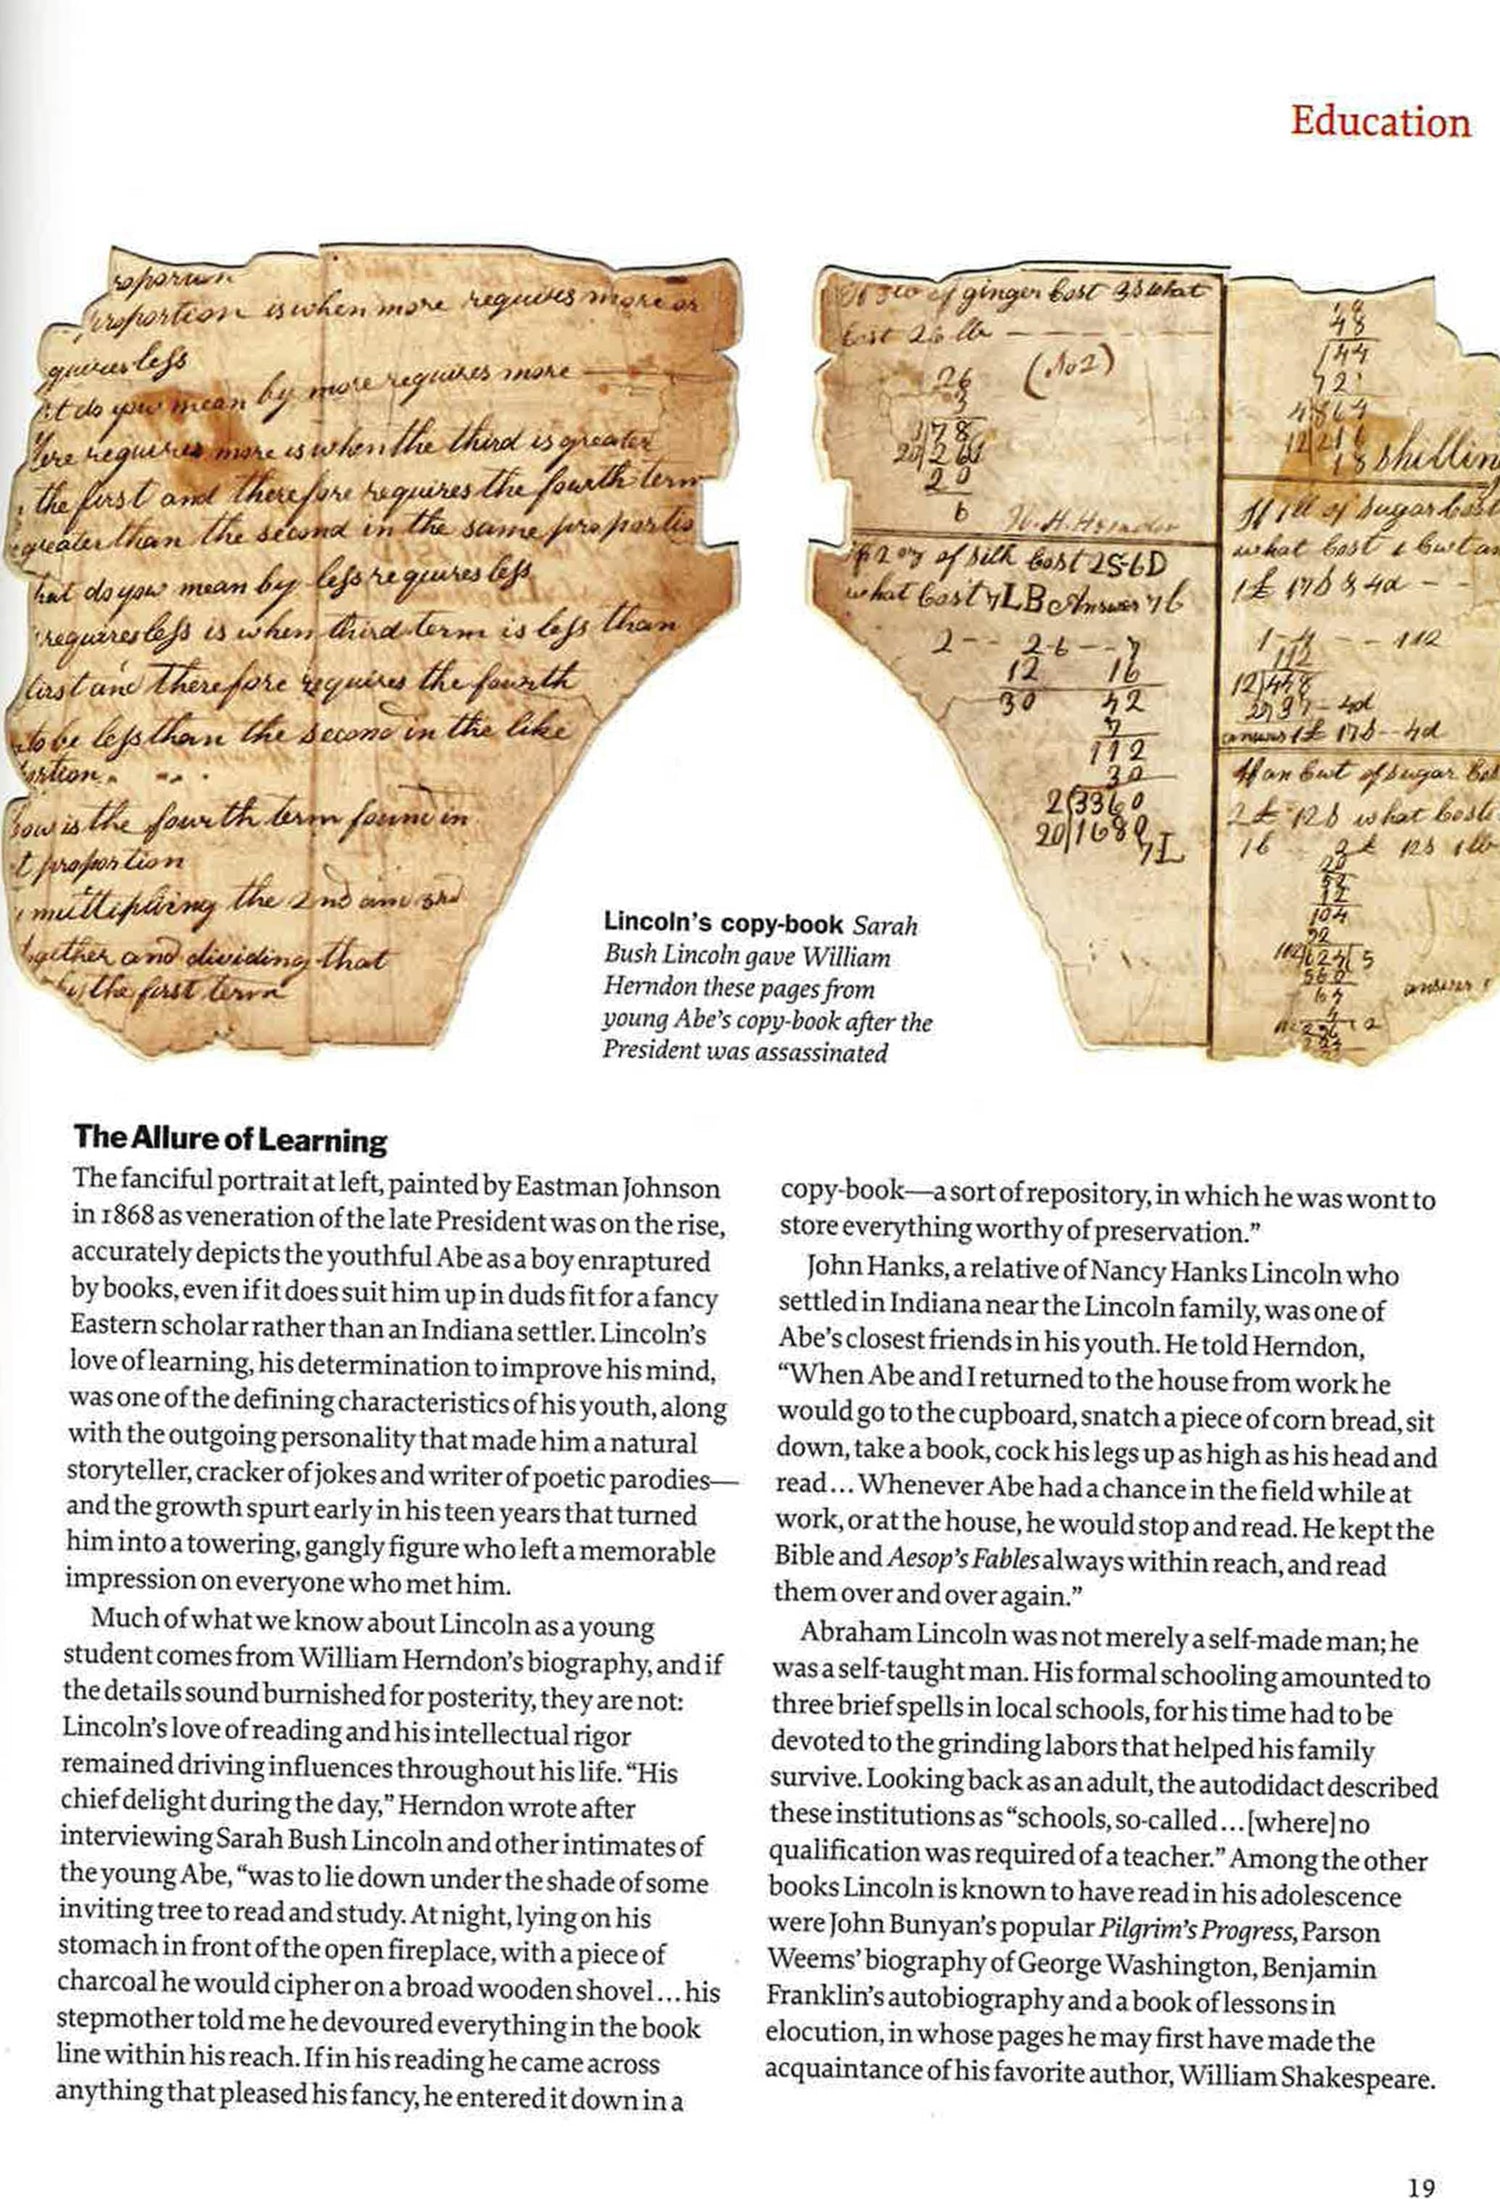 Education
proportion is when more requires more or
quires less
t do you mean by more requires more
ere requires more is when the third is greater
the first and therefore requires the fourth term
greater than the second in the same proportio
hat do you mean by less requires less
requires less is when third term is less than
first and Therefore requires the fourth
to be less than the second in the like
ortion
how is the fourth term found in
t proportion
multiplying the 2nd and 3rd
ogether and dividing that
by the first term
of ginger Cost 3s what
Cost 26 lb
(No2)
26
3
78
20
6
2 oz of Silk Cost 2S-6D
what Cost 7LB Answer 7 L
2-- 2-6--7
12 16
30 42
7
112
30
2(3360
20|1680
7L
48
144
72
4|864
12|216
18 shillin
If 1lb of Sugar Cost
what Cost
1£ 17S & 4d - -
1-4 - - 112
112
12)448
37-4d
1£ 17S--4d
If an Cwt of Sugar Cos
2£ 12S what Cost
2£ 12s 1lb
20
52
12
104
answer
Lincoln’s copy-book Sarah
Bush Lincoln gave William
Herndon these pages from
young Abe’s copy-book after the
President was assassinated
The Allure of Learning
The fanciful portrait at left, painted by Eastman Johnson
in 1868 as veneration of the late President was on the rise,
accurately depicts the youthful Abe as a boy enraptured
by books, even if it does suit him up in duds fit for a fancy
Eastern scholar rather than an Indiana settler. Lincoln’s
love of learning, his determination to improve his mind,
was one of the defining characteristics of his youth, along
with the outgoing personality that made him a natural
storyteller, cracker of jokes and writer of poetic parodies—
and the growth spurt early in his teen years that turned
him into a towering, gangly figure who left a memorable
impression on everyone who met him.
Much of what we know about Lincoln as a young
student comes from William Herndon’s biography, and if
the details sound burnished for posterity, they are not:
Lincoln’s love of reading and his intellectual rigor
remained driving influences throughout his life. “His
chief delight during the day,” Herndon wrote after
interviewing Sarah Bush Lincoln and other intimates of
the young Abe, “was to lie down under the shade of some
inviting tree to read and study. At night, lying on his
stomach in front of the open fireplace, with a piece of
charcoal he would cipher on a broad wooden shovel...his
stepmother told me he devoured everything in the book
line within his reach. If in his reading he came across
anything that pleased his fancy, he entered it down in a
copy-book—a sort of repository, in which he was wont to
store everything worthy of preservation.”
John Hanks, a relative of Nancy Hanks Lincoln who
settled in Indiana near the Lincoln family, was one of
Abe’s closest friends in his youth. He told Herndon,
“When Abe and I returned to the house from work he
would go to the cupboard, snatch a piece of corn bread, sit
down, take a book, cock his legs up as high as his head and
read... Whenever Abe had a chance in the field while at
work, or at the house, he would stop and read. He kept the
Bible and Aesop’s Fables always within reach, and read
them over and over again.”
Abraham Lincoln was not merely a self-made man; he
was a self-taught man. His formal schooling amounted to
three brief spells in local schools, for his time had to be
devoted to the grinding labors that helped his family
survive. Looking back as an adult, the autodidact described
these institutions as “schools, so-called...[where] no
qualification was required of a teacher.” Among the other
books Lincoln is known to have read in his adolescence
were John Bunyan’s popular Pilgrim’s Progress, Parson
Weems’ biography of George Washington, Benjamin
Franklin’s autobiography and a book of lessons in
elocution, in whose pages he may first have made the
acquaintance of his favorite author, William Shakespeare.
19